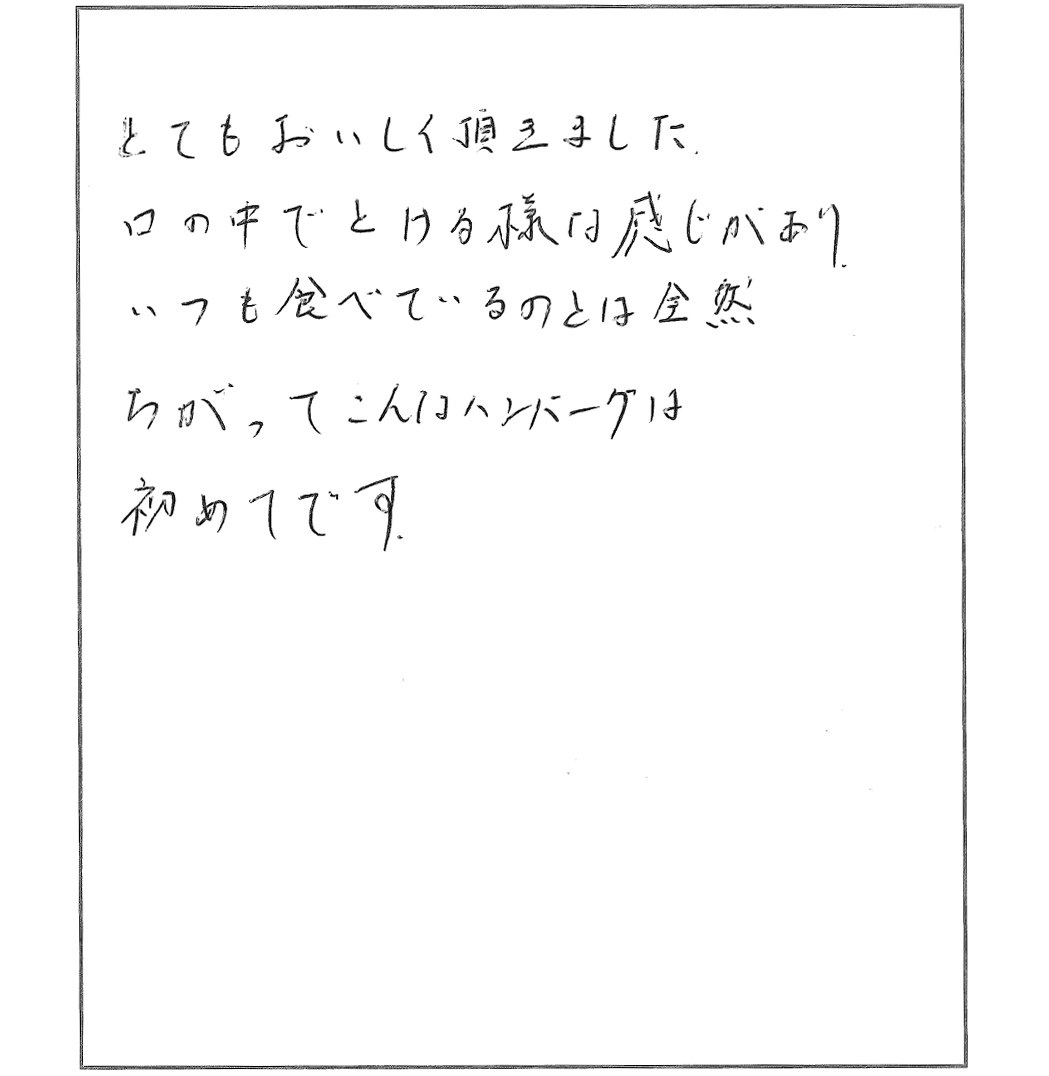 とてもおいしく頂きました.
口の中でとける様な感じがあり.
いつも食べているのとは全然
ちがってこんなハンバーグは
初めてです.